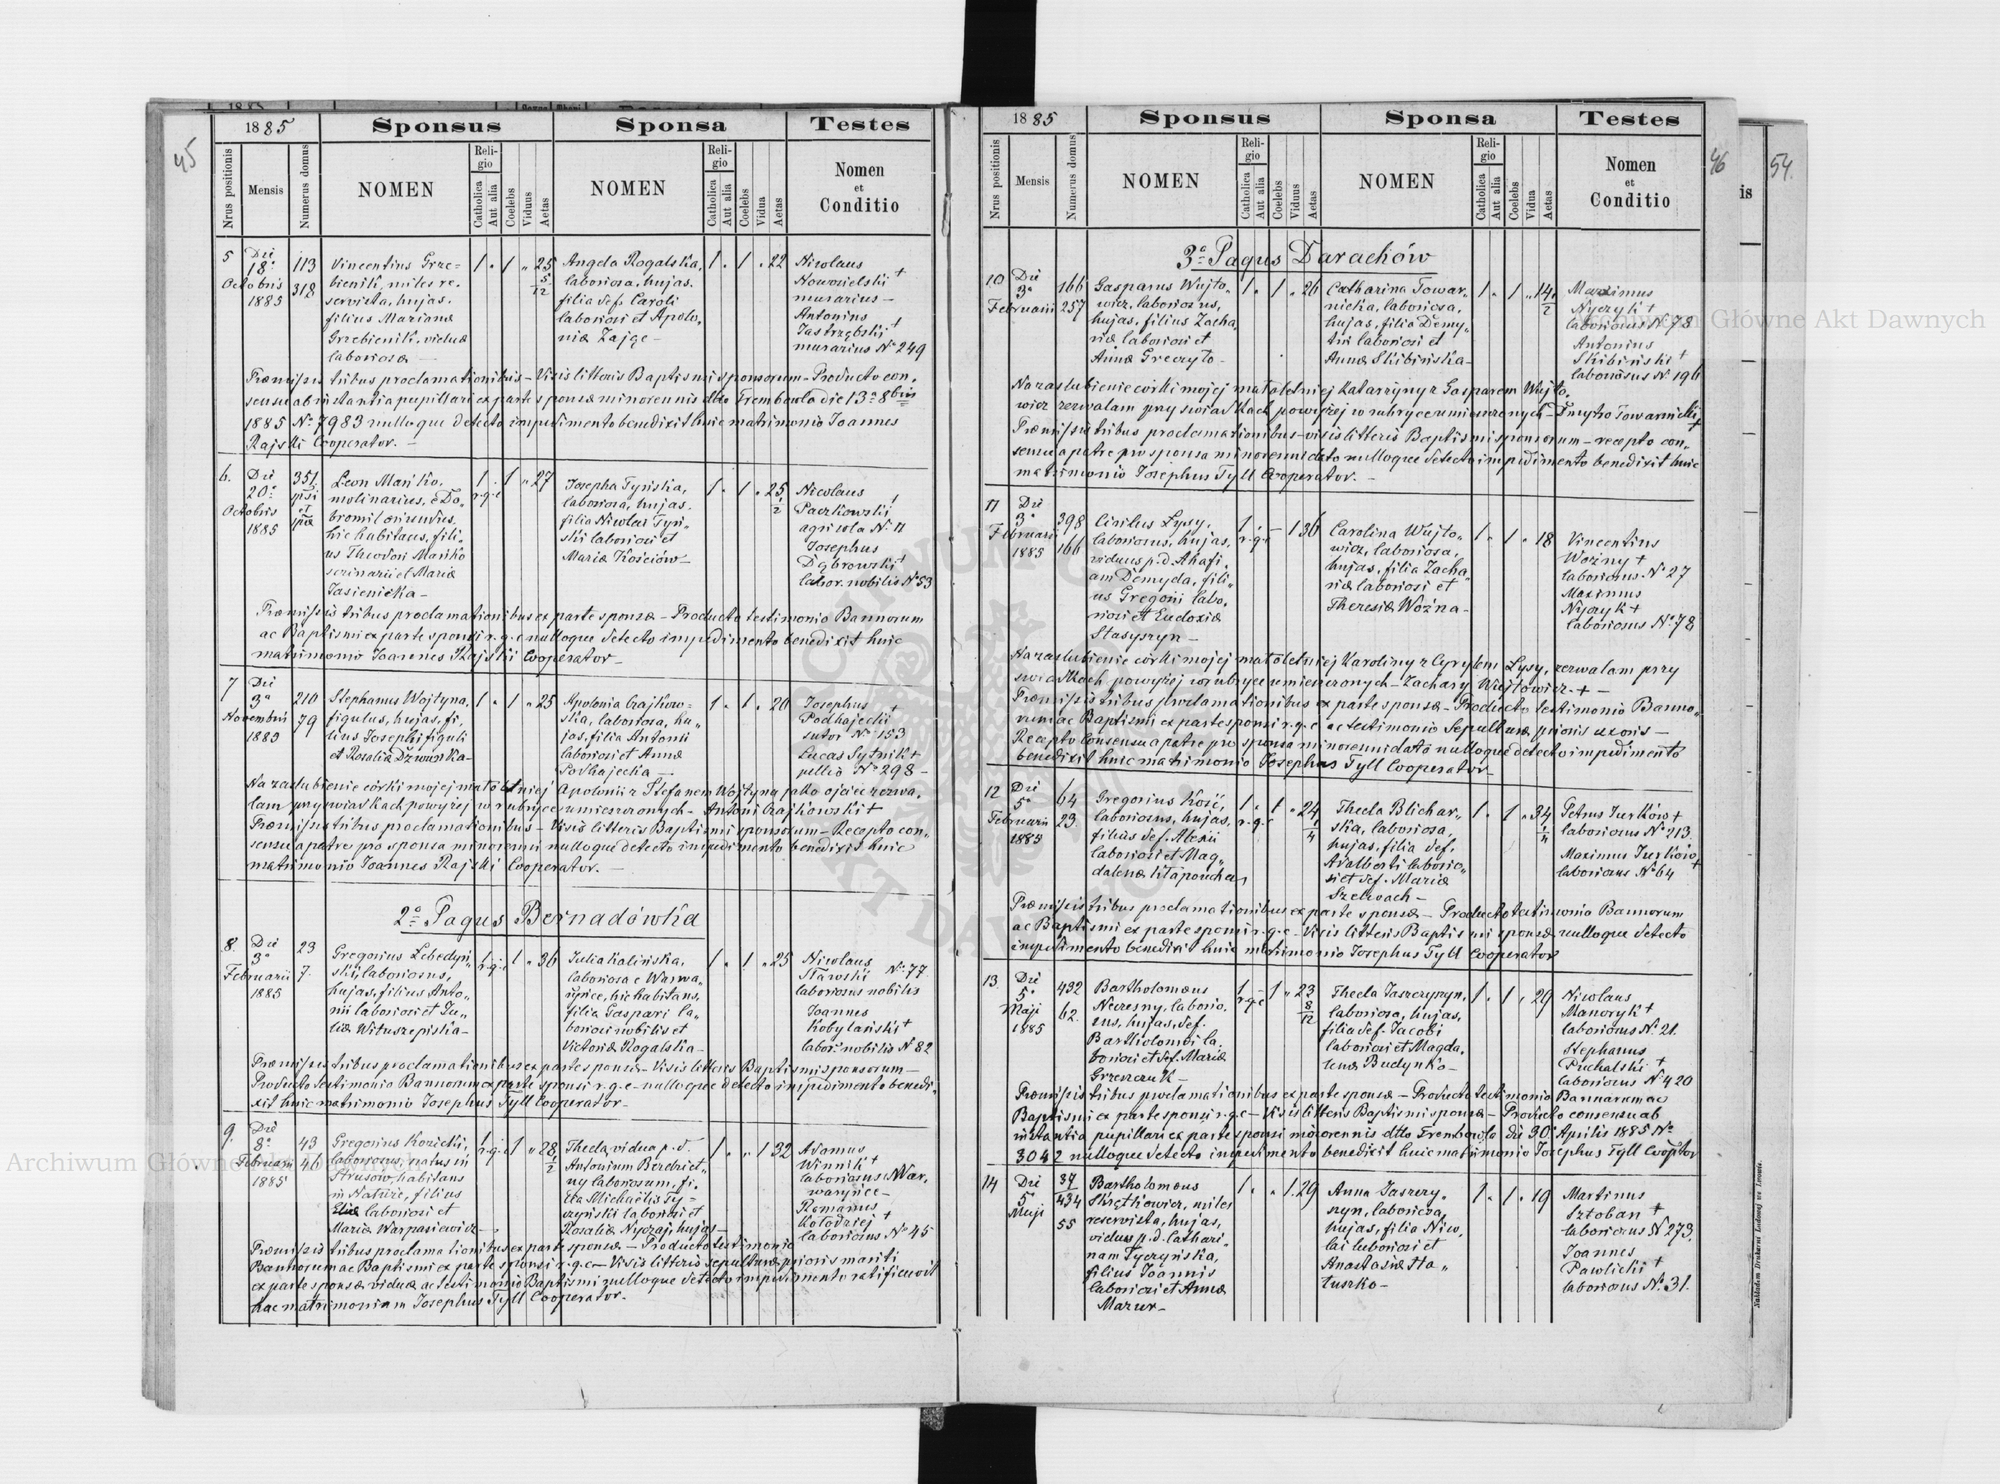 45
1885
Sponsus
Sponsa
Testes
Nrus positionis
Mensis
Numerus domus
NOMEN
Religio
Catholica
Aut alia
Coelebs
Viduus
Aetas
NOMEN
Religio
Catholica
Aut alia
Coelebs
Vidua
Aetas
Nomen
et
Conditio
5 Die 18a Octobris 1885
113
318
Vincentius Grze=
bienik, miles re=
servista, hujas,
filius Marianae
Grzebienik, viduae
laboriosae —
1 . 1 " 25 5/12
Angela Rogalska,
laboriosa, hujas.
filia def. Caroli
laboriosi et Apolo,
niae Zając —
1 . 1 . 22
Nicolaus
Nowosielski +
murarius —
Antonius
Jastrzębski +
murarius No 249
Praemissis tribus proclamationibus – Visis litteris Baptismi sponsorum – Producto con,
sensu ab instantia pupillari ex parte sponsae minorennis ddto Trembowla die 13a 8bris
1885 No 7983 nulloque detecto impedimento benedixit huic matrimonio Joannes
Rajski Cooperator. —
6. Die 20a Octobris 1885
351
ipsi
et
ipsa
Leon Mańko,
molinarius, e Do,
bromil oriundus,
hic habitans, fili,
us Theodori Mańko
scrinarii et Mariae
Jasienicka —
1 r.g.c 1 " 27
Josepha Tyńska,
laboriosa, hujas,
filia Nicolai Tyń,
ski laboriosi et
Mariae Kościów —
1 . 1 . 25 1/2
Nicolaus
Paczkowski
agricola No 11
Josephus
Dąbrowski +
labor. nobilis No 53
Praemissis tribus proclamationibus ex parte sponsae – Producto testimonio Bannorum
ac Baptismi ex parte sponsi r.g.c nulloque detecto impedimento benedixit huic
matrimonio Joannes Rajski Cooperator —
7 Die 3a Novembris 1885
210
79
Stephanus Wojtyna,
figulus, hujas, fi,
lius Josephi figuli
et Rosaliae Dżwurska —
1 . 1 . 25
Apolonia Czajkow=
ska, laboriosa, hu,
jas, filia Antonii
laboriosi et Annae
Podhajecka —
1 . 1 . 20
Josephus
Podhajecki +
sutor No 153
Lucas Sytnik +
pellio No 298 —
Na zaślubienie córki mojej małoletniej Apolonii z Stefanem Wojtyną jako ojciec zezwa,
lam przy świadkach powyżej w rubryce umieszczonych – Antoni Czajkowski +
Praemissis tribus proclamationibus – Visis litteris Baptismi sponsorum – Recepto con,
sensu a patre pro sponsa minorenni nulloque detecto impedimento benedixit huic
matrimonio Joannes Rajski Cooperator. —
2o Pagus Bernadówka
8. Die 3a Februarii 1885
23
7.
Gregorius Lebedyń,
ski, laboriosus,
hujas, filius Anto,
nii laboriosi et Ju,
liae Wituszepiska —
1 r.g.c 1 " 36
Julia Kalińska,
laboriosa e Warwa,
ryńce, hic habitans,
filia Gaspari la,
boriosi nobilis et
Victoriae Rogalska —
1 . 1 . 25
Nicolaus
No 77.
laboriosus nobilis
Joannes
Kobylański +
labor. nobilis No 82
Praemissis tribus proclamationibus ex parte sponsae – Visis litteris Baptismi sponsorum —
Producto testimonio Bannorum ex parte sponsi r.g.c – nulloque detecto impedimento benedi,
xit huic matrimonio Josephus Tyll Cooperator —
9. Die 8a Februarii 1885
43
46
Gregorius Kozicki,
laboriosus, natus in
Strusow, habitans
in Nałuże, filius
Eliae laboriosi et
Mariae Warpasiewicz —
1 r.g.c 1 " 28 1/2
Thecla, vidua p. d.
Antonium Berehiet,
ny laboriosum, fi,
lia Michaelis Ty,
czyński laboriosi et
Rosaliae Nyczaj, hujas —
1 . . 1 32
Adamus
Winnik +
laboriosus No War,
waryńce —
Romanus
Kołodziej +
laboriosus No 45
Praemissis tribus proclamationibus ex parte sponsae – Producto testimonio
Bannorum ac Baptismi ex parte sponsi r.g.c – Visis litteris sepulturae prioris mariti
ex parte sponsae viduae ac testimonio Baptismi nulloque detecto impedimento ratificavit
hac matrimonium Josephus Tyll Cooperator. —
46
54.
is
1885
Sponsus
Sponsa
Testes
Nrus positionis
Mensis
Numerus domus
NOMEN
Religio
Catholica
Aut alia
Coelebs
Viduus
Aetas
NOMEN
Religio
Catholica
Aut alia
Coelebs
Vidua
Aetas
Nomen
et
Conditio
3o Pagus Darachów
10 Die 3a Februarii
166
257
Gasparus Wujto,
wicz, laboriosus,
hujas, filius Zacha,
riae laboriosi et
Annae Greczyło —
1 . 1 . 26
Catharina Towar,
nicka, laboriosa,
hujas, filia Demy,
trii laboriosi et
Annae Skibińska —
1 . 1 . 14 1/2
Maximus
Nyczyk +
laboriosus No 78
Antonius
Skibiński +
laboriosus No 196
Na zaślubienie córki mojej małoletniej Katarzyny z Gasparem Wujto,
wicz zezwalam przy świadkach powyżej w rubryce umieszczonych – Dmytro Towarnicki +
Praemissis tribus proclamationibus – visis litteris Baptismi sponsorum – recepto con,
sensu a patre pro sponsa minorenni dato nulloque detecto impedimento benedixit huic
matrimonio Josephus Tyll Cooperator. —
11 Die 3a Februarii 1885
398
166
Cirilus Łysy,
laboriosus, hujas,
viduus p. d. Ahafi,
am Demyda, fili,
us Gregorii labo,
riosi et Eudoxiae
Stasyszyn —
1 r.g.c – 1 36
Carolina Wujto,
wicz, laboriosa,
hujas, filia Zacha,
riae laboriosi et
Theresiae Woźna —
1 . 1 . 18
Vincentius
Woźny +
laboriosus No 27
Maximus
Nyczyk +
laboriosus No 78
Na zaślubienie córki mojej małoletniej Karoliny z Cyrylem Łysy, zezwalam przy
świadkach powyżej w rubryce umieszczonych – Zachary Wujtowicz + —
Praemissis tribus proclamationibus ex parte sponsae – Producto testimonio Banno,
rum ac Baptismi ex parte sponsi r.g.c ac testimonio Sepulturae prioris uxoris —
Recepto consensu a patre pro sponsa minorenni dato nulloque detecto impedimento
benedixit huic matrimonio Josephus Tyll Cooperator —
12 Die 5a Februarii 1885
64
23
Gregorius Kość,
laboriosus, hujas,
filius def. Alexii
laboriosi et Mag,
dalenae
1 r.g.c 1 " 24 1/4
Thecla Blichar,
ska, laboriosa,
hujas, filia def.
Adalberti laborio,
si et def. Mariae
Szelwach —
1 . 1 . 34 1/4
Petrus Jurków +
laboriosus No 213.
Maximus Jurków +
laboriosus No 64
Praemissis tribus proclamationibus ex parte sponsae – Producto testimonio Bannorum
ac Baptismi ex parte sponsi r.g.c – Visis litteris Baptismi sponsae nulloque detecto
impedimento benedixit huic matrimonio Josephus Tyll Cooperator
13. Die 5a Maji 1885
432
62.
Bartholomaeus
Neczesny, laborio,
sus, hujas, def.
Bartholomaei la,
boriosi et def. Mariae
Grzeszczuk —
1 r.g.c 1 " 23 8/12
Thecla Jaszczyszyn,
laboriosa, hujas,
filia def. Jacobi
laboriosi et Magda,
lenae Budynko —
1 . 1 . 29
Nicolaus
Manoryk +
laboriosus No 21.
Stephanus
Puchalski +
laboriosus No 420
Praemissis tribus proclamationibus ex parte sponsae – Producto testimonio Bannorum ac
Baptismi ex parte sponsi r.g.c – Visis litteris Baptismi sponsae – Producto consensu ab
instantia pupillari ex parte sponsi minorennis ddto Trembowla die 30. Aprilis 1885 No
3042 nulloque detecto impedimento benedixit huic matrimonio Josephus Tyll Cooptor
14 Die 5a Maji
37
434
55
Bartholomaeus
Skrętkowicz, miles
reservista, hujas,
viduus p. d. Cathari,
nam Tyczyńska,
filius Joannis
laboriosi et Annae
Mazur —
1 . . 1. 29
Anna Jaszczy,
szyn, laboriosa,
hujas, filia Nico,
lai laboriosi et
Anastasiae Ha,
łuszko —
1 . 1 . 19
Martinus
Sztoban +
laboriosus No 273.
Joannes
Pawlicki +
laboriosus No 31.
Nakładem Drukarni Ludowej we Lwowie.
Archiwum Główne Akt Dawnych
Archiwum Główne Akt Dawnych
ARCHIWUM GŁÓWNE AKT DAWNYCH